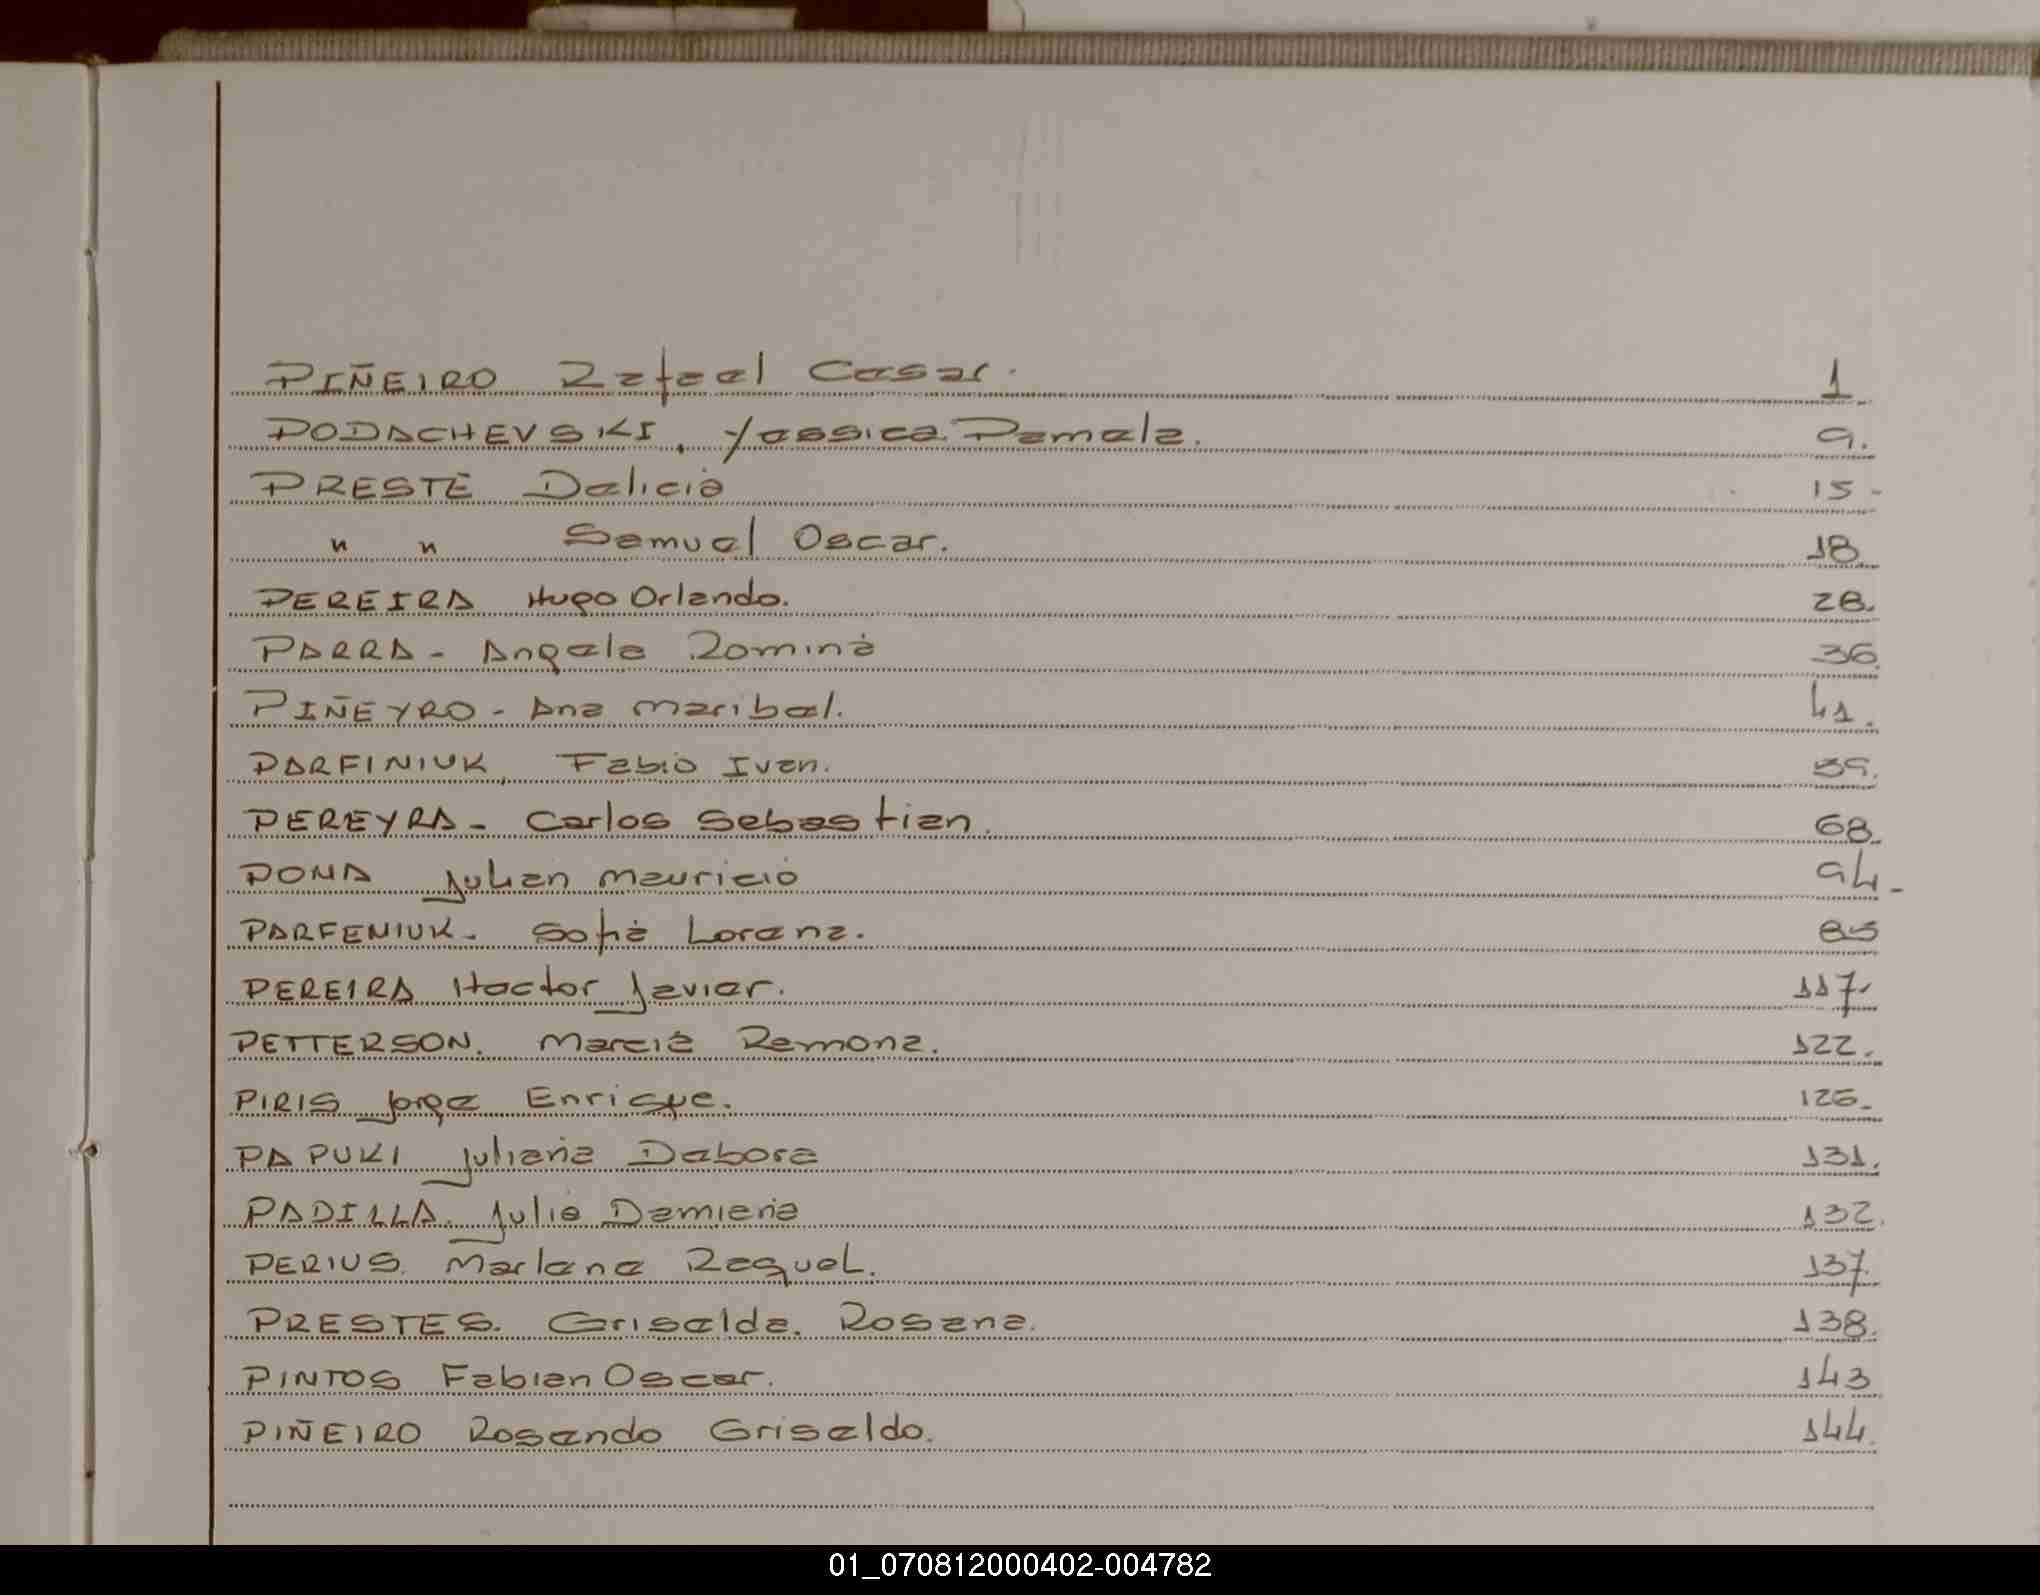 PIÑEIRO Rafael Cesar. 1
PODACHEVSKI, Yessica Pamela. 9.
PRESTE Delicia 15-
" " Samuel Oscar. 18
PEREIRA Hugo Orlando. 28.
PARRA - Angela Romina 36.
PIÑEYRO - Ana Maribel. 41.
PARFINIUK, Fabio Ivan. 39.
PEREYRA - Carlos Sebastian. 68.
POMA Julian Mauricio 94-
PARFENIUK - Sofia Lorena. 85
PEREIRA Hector Javier. 117.
PETTERSON. Marcia Ramona. 122.
PIRIS Jorge Enrique. 126.
PAPUKI Juliana Debora 131.
PADILLA. Julia Damiana 132.
PERIUS. Marlene Raquel. 137.
PRESTES. Griselda. Rosana. 138.
PINTOS Fabian Oscar. 143
PIÑEIRO Rosendo Griseldo. 144.
01_070812000402-004782